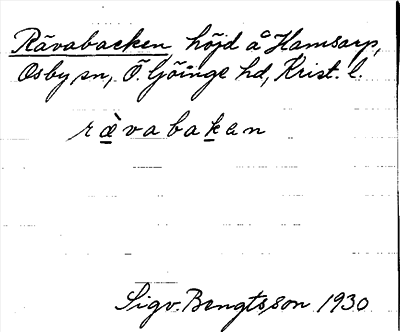 Rävabacken, höjd å Hamsarp,
Osby sn, Ö. Göinge hd, Krist. l.
rὲvabakan
Sigv. Bengtsson 1930